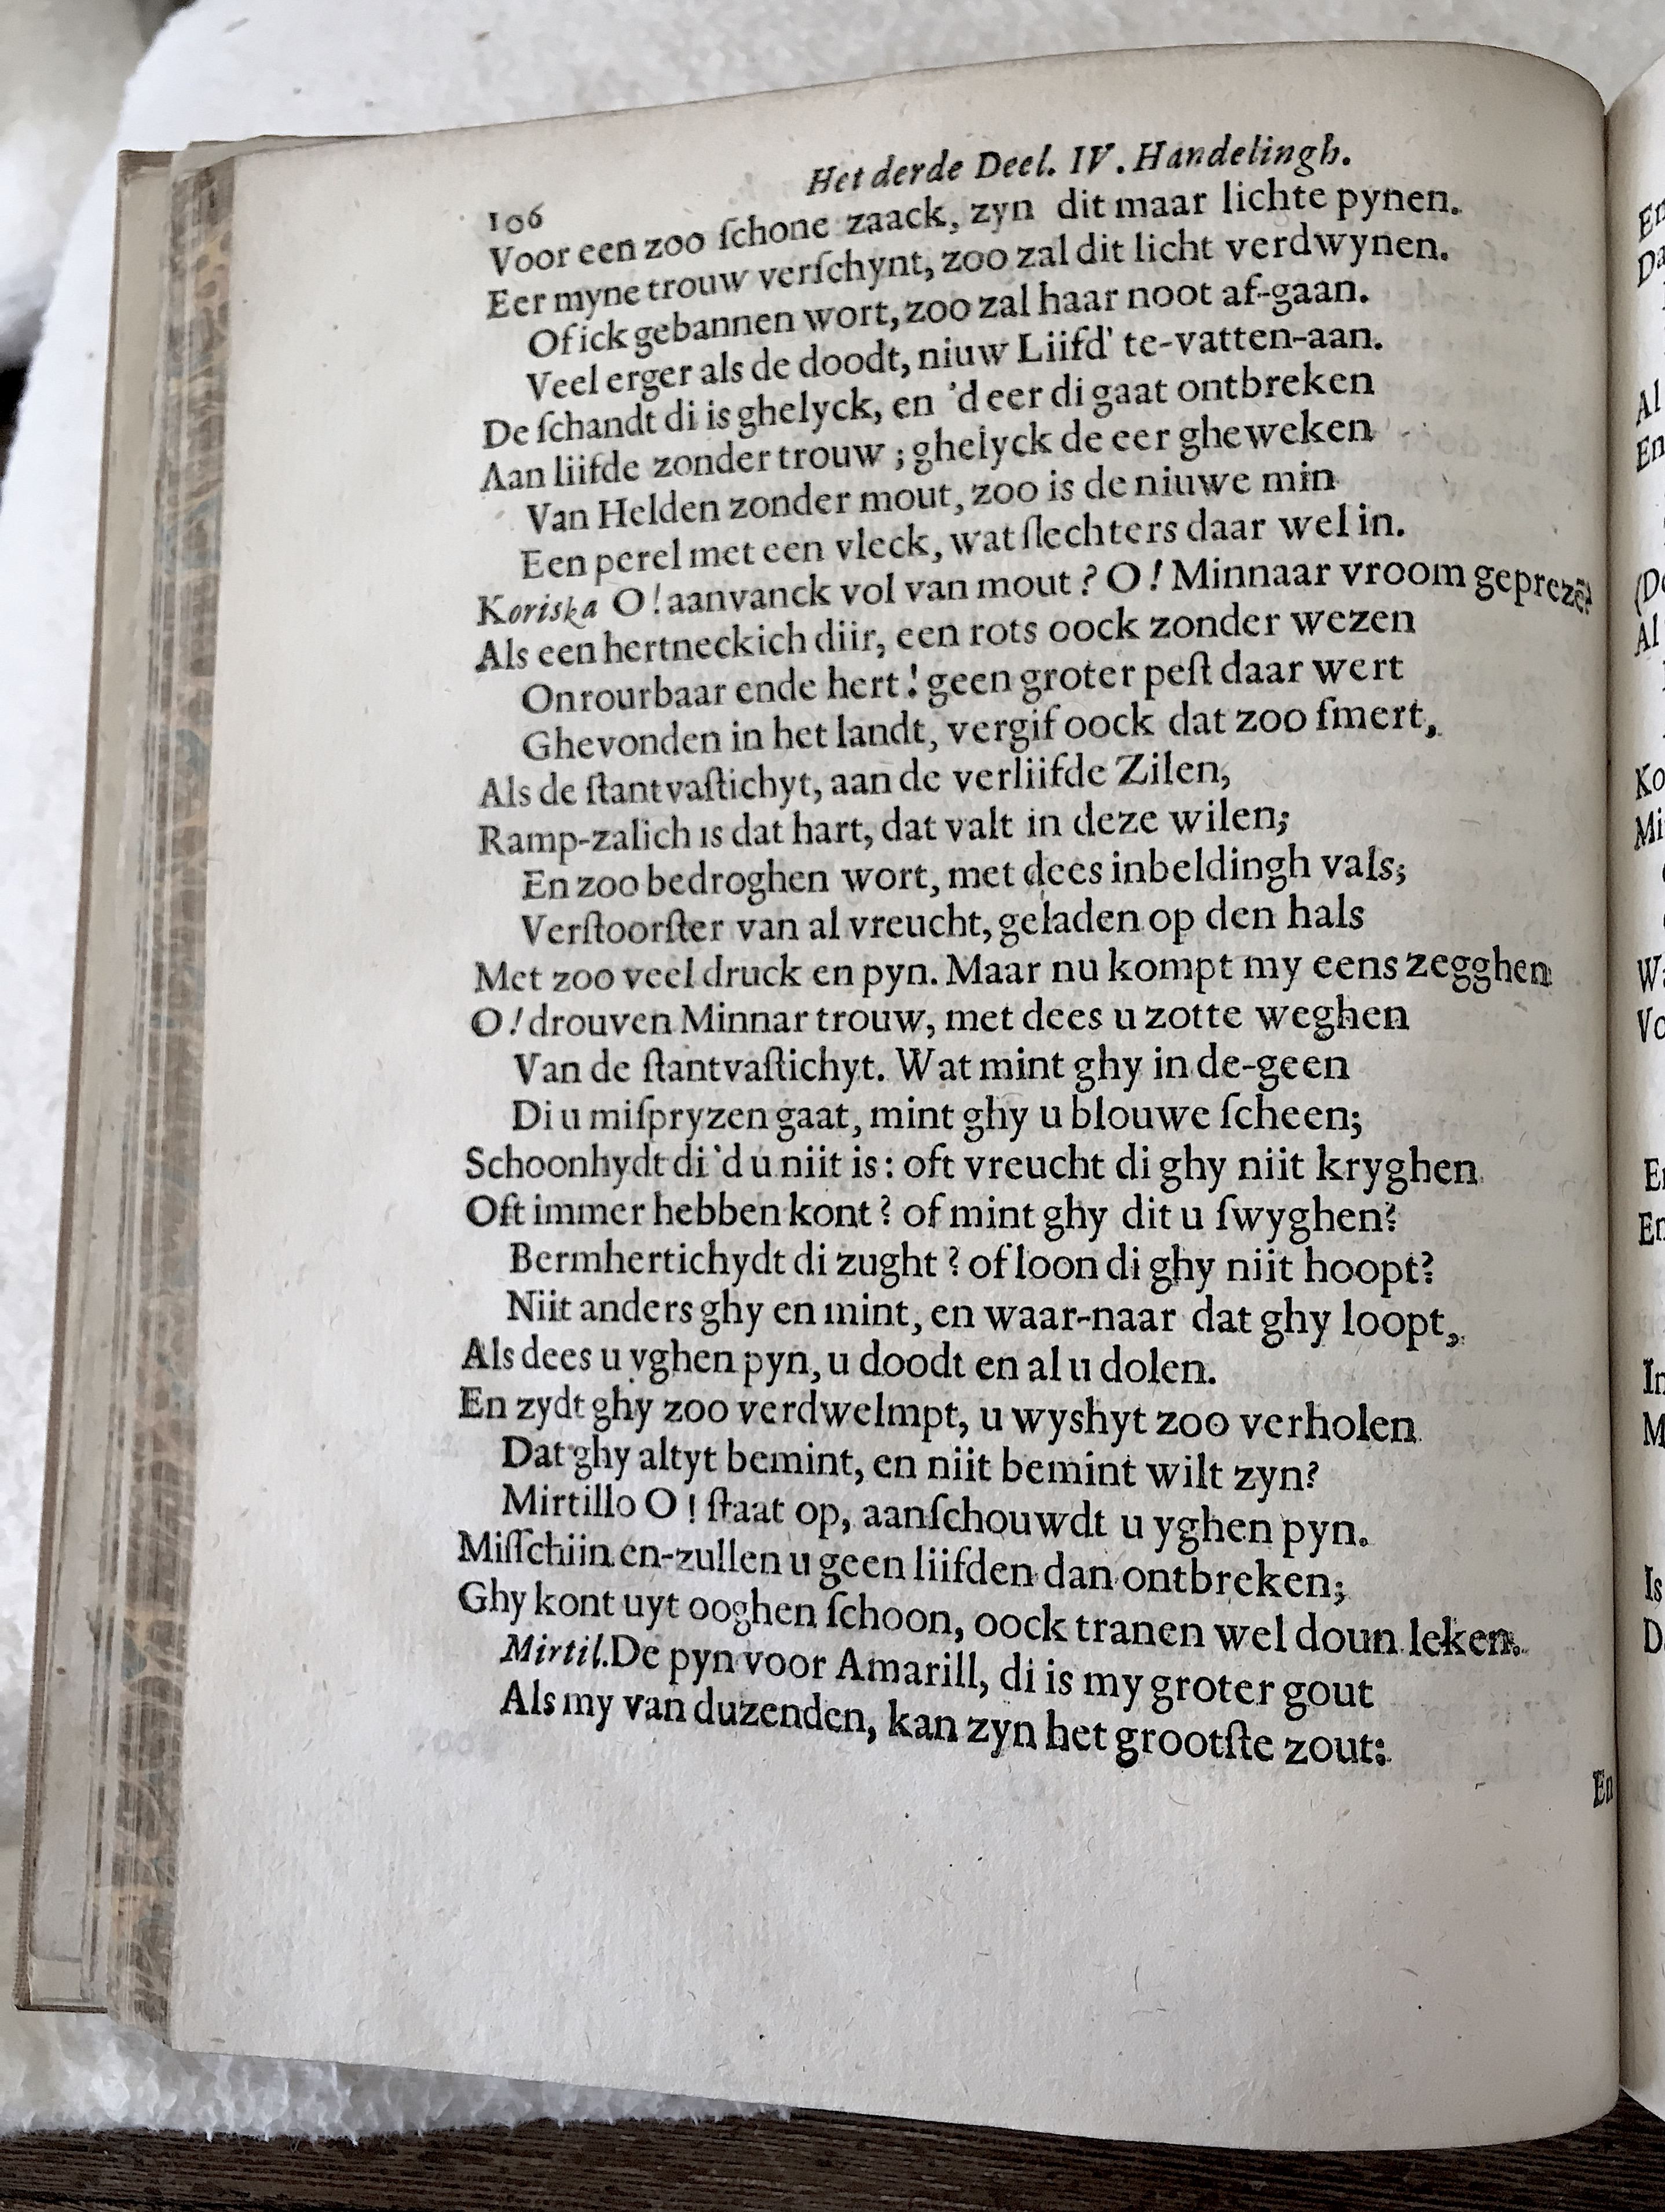 Het derde Deel. IV. Handelingh.
106
Voor een zoo ſchone zaack, zyn dit maar lichte pynen.
Eer myne trouw verſchynt, zoo zal dit licht verdwynen.
Of ick gebannen wort, zoo zal haar noot af-gaan.
Veel erger als de doodt, niuw Liifd' te-vatten-aan.
De ſchandt di is ghelyck, en 'd eer di gaat ontbreken
Aan liifde zonder trouw ; ghelyck de eer gheweken
Van Helden zonder mout, zoo is de niuwe min
Een perel met een vleck, wat ſlechters daar wel in.
Koriska O! aanvanck vol van mout ? O! Minnaar vroom geprezē?
Als een hertneckich diir, een rots oock zonder wezen
Onrourbaar ende hert ! geen groter peſt daar wert
Ghevonden in het landt, vergif oock dat zoo ſmert,
Als de ſtantvaſtichyt, aan de verliifde Zilen,
Ramp-zalich is dat hart, dat valt in deze wilen;
En zoo bedroghen wort, met dees inbeldingh vals;
Verſtoorſter van al vreucht, geladen op den hals
Met zoo veel druck en pyn. Maar nu kompt my eens zegghen
O! drouven Minnar trouw, met dees u zotte weghen
Van de ſtantvaſtichyt. Wat mint ghy in de-geen
Di u miſpryzen gaat, mint ghy u blouwe ſcheen;
Schoonhydt di 'd u niit is : oft vreucht di ghy niit kryghen
Oft immer hebben kont ? of mint ghy dit u ſwyghen?
Bermhertichydt di zught ? of loon di ghy niit hoopt?
Niit anders ghy en mint, en waar-naar dat ghy loopt,
Als dees u yghen pyn, u doodt en al u dolen.
En zydt ghy zoo verdwelmpt, u wyshyt zoo verholen
Dat ghy altyt bemint, en niit bemint wilt zyn?
Mirtillo O ! ſtaat op, aanſchouwdt u yghen pyn.
Miſſchiin en-zullen u geen liifden dan ontbreken;
Ghy kont uyt ooghen ſchoon, oock tranen wel doun leken.
Mirtil. De pyn voor Amarill, di is my groter gout
Als my van duzenden, kan zyn het grootſte zout:
En
En
Da
Al
En
(De
Al
Ko
Mi
Wa
Vo
En
En
In
M
Is
D